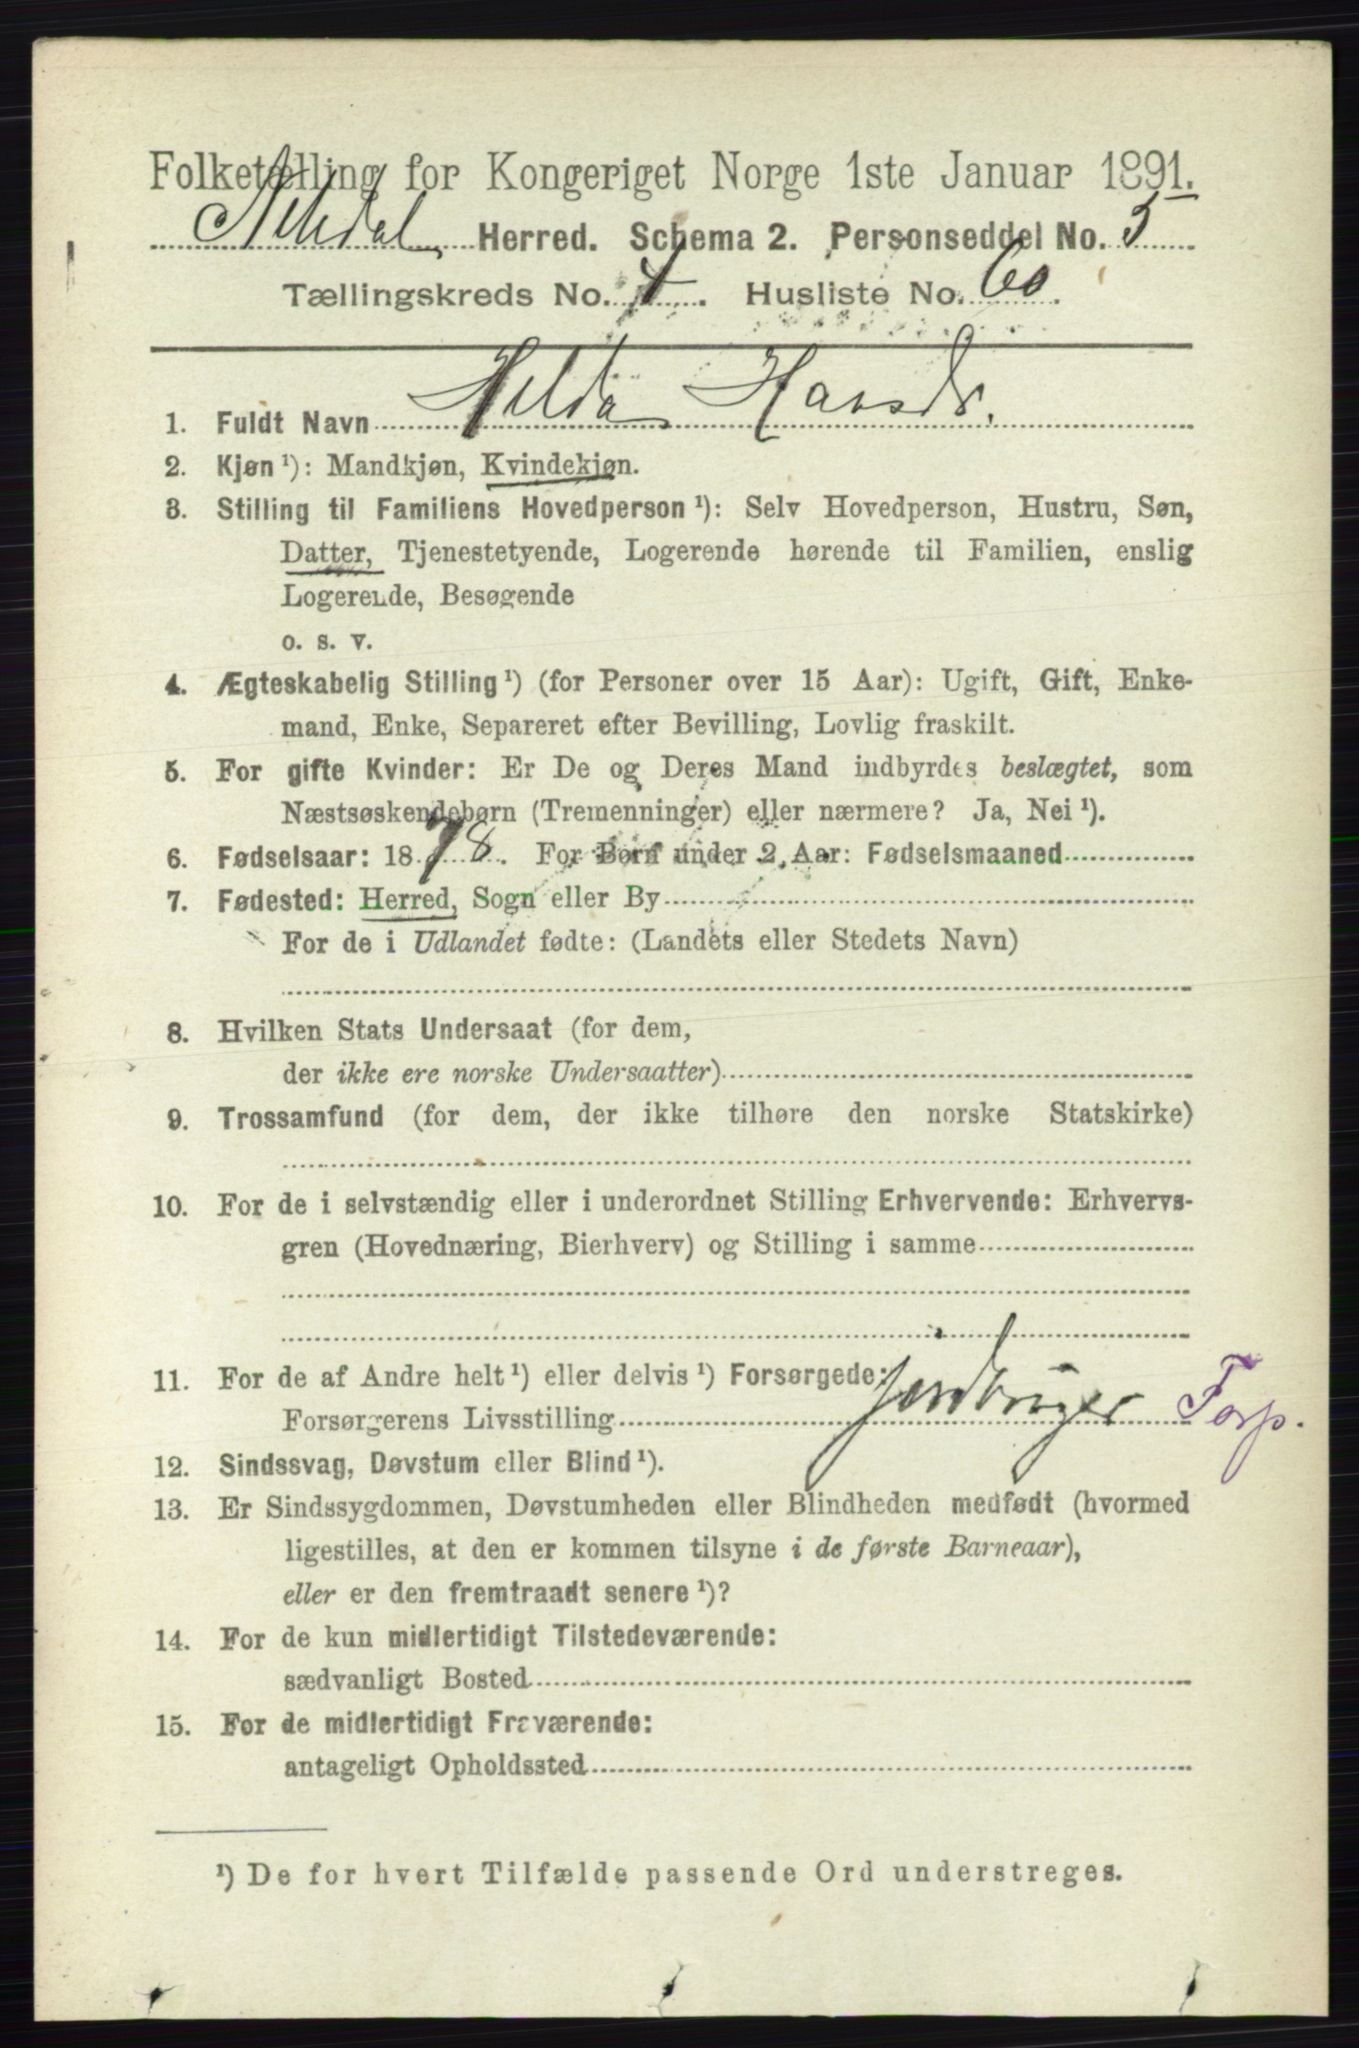 Folketælling for Kongeriget Norge 1ste Januar 1891.
Nitedal Herred. Schema 2. Personseddel No. 5
Tællingskreds No. 4. Husliste No. 60.
1. Fuldt Navn Hilda Hansdr.
2. Kjøn ¹): Mandkjøn, Kvindekjøn.
3. Stilling til Familiens Hovedperson ¹): Selv Hovedperson, Hustru, Søn,
Datter, Tjenestetyende, Logerende hørende til Familien, enslig
Logerende, Besøgende
o. s. v.
4. Ægteskabelig Stilling ¹) (for Personer over 15 Aar): Ugift, Gift, Enke-
mand, Enke, Separeret efter Bevilling, Lovlig fraskilt.
5. For gifte Kvinder: Er De og Deres Mand indbyrdes beslægtet, som
Næstsøskendebørn (Tremenninger) eller nærmere? Ja, Nei ¹).
6. Fødselsaar: 1878. For Børn under 2 Aar: Fødselsmaaned
7. Fødested: Herred, Sogn eller By
For de i Udlandet fødte: (Landets eller Stedets Navn)
8. Hvilken Stats Undersaat (for dem,
der ikke ere norske Undersaatter)
9. Trossamfund (for dem, der ikke tilhøre den norske Statskirke)
10. For de i selvstændig eller i underordnet Stilling Erhvervende: Erhvervs-
gren (Hovednæring, Bierhverv) og Stilling i samme
11. For de af Andre helt ¹) eller delvis ¹) Forsørgede:
Forsørgerens Livsstilling Jordbruger Forp.
12. Sindssvag, Døvstum eller Blind ¹).
13. Er Sindssygdommen, Døvstumheden eller Blindheden medfødt (hvormed
ligestilles, at den er kommen tilsyne i de første Barneaar),
eller er den fremtraadt senere ¹)?
14. For de kun midlertidigt Tilstedeværende:
sædvanligt Bosted
15. For de midlertidigt Fraværende:
antageligt Opholdssted
¹) De for hvert Tilfælde passende Ord understreges.